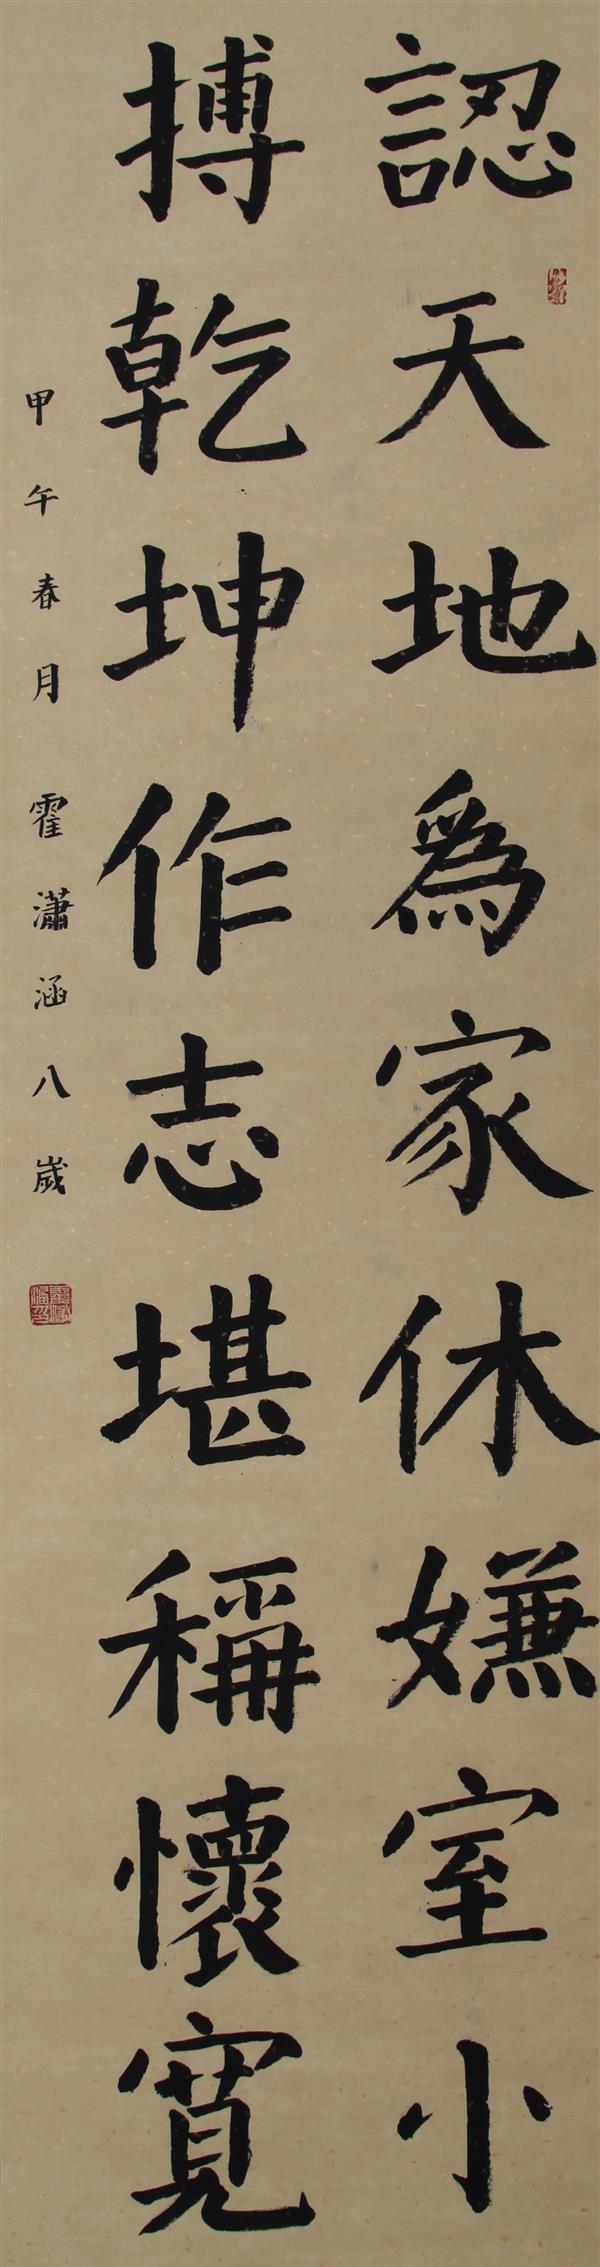 認天地為家休嫌室小
搏乾坤作志堪稱懷寬
甲午春月霍瀟涵八歲